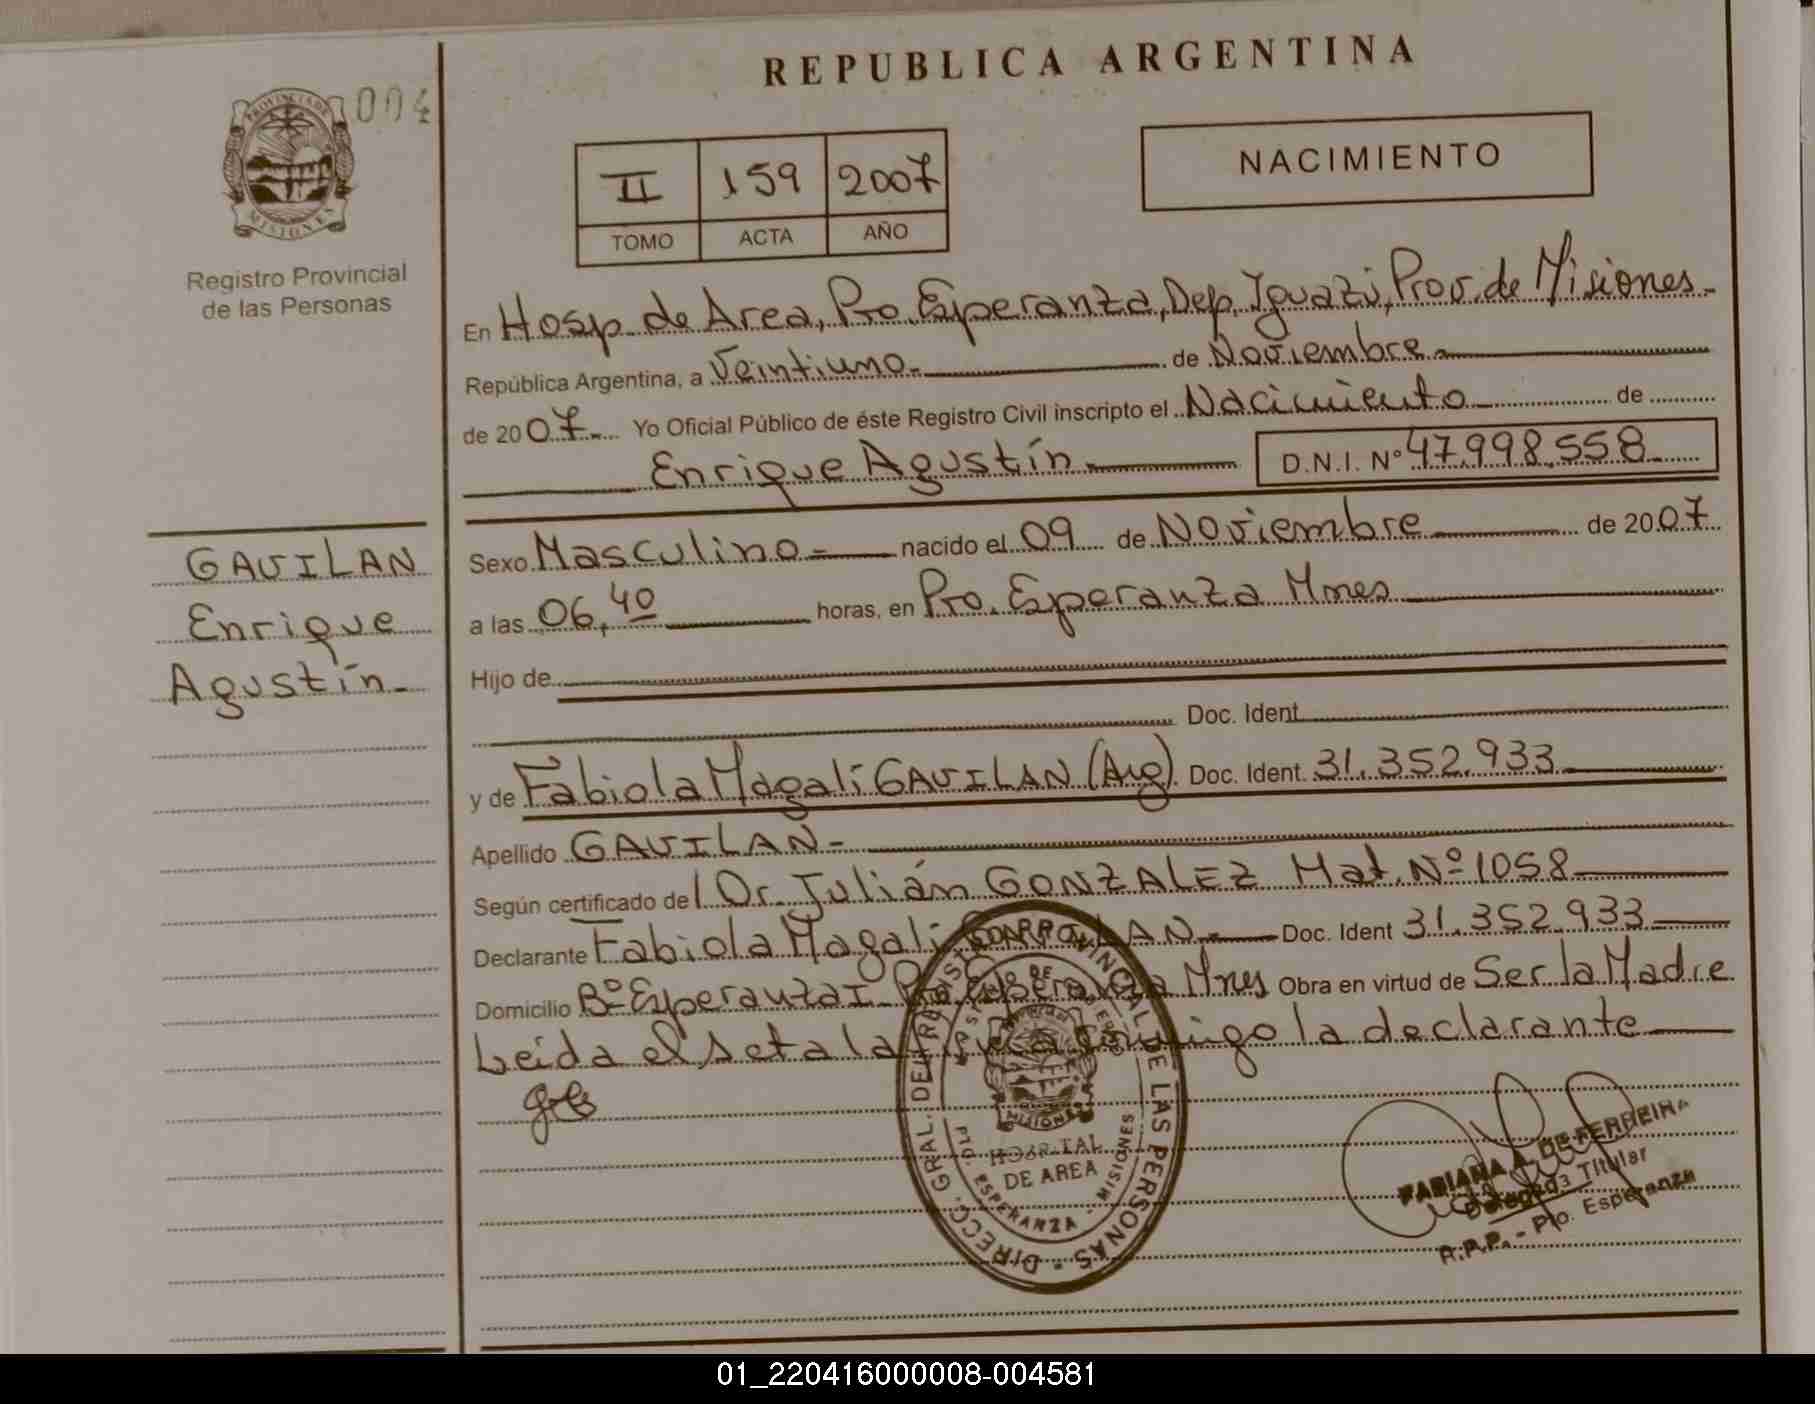 REPUBLICA ARGENTINA
004
PROVINCIA DE MISIONES
Registro Provincial
de las Personas
II 159 2007
TOMO ACTA AÑO
NACIMIENTO
En Hosp. de Area, Pto. Esperanza, Dep. Iguazú, Prov. de Misiones.-
República Argentina, a Veintiuno.- de Noviembre.-
de 2007.- Yo Oficial Público de éste Registro Civil inscripto el Nacimiento de
Enrique Agustín D.N.I. Nº 47.998.558
GAVILAN
Enrique
Agustín.-
Sexo Masculino.- nacido el 09 de Noviembre de 2007
a las 06,40 horas, en Pto. Esperanza Mnes
Hijo de
Doc. Ident.
y de Fabiola Magalí GAVILAN (Arg). Doc. Ident. 31.352.933
Apellido GAVILAN.-
Según certificado del Dr. Julián GONZALEZ Mat. Nº 1058
Declarante Fabiola Magalí GAVILAN.- Doc. Ident 31.352.933
Domicilio Bº Esperanza I Pto. Esperanza Mnes Obra en virtud de Ser la Madre
Leída el acta la firma conmigo la declarante
DIRECC. GRAL. DEL REGISTRO PROVINCIAL DE LAS PERSONAS
MISIONES
HOSPITAL
DE AREA
PTO. ESPERANZA - MISIONES
FABIANA A. DE FERREIRA
Delegada Titular
R.P.P. - Pto. Esperanza
01_220416000008-004581